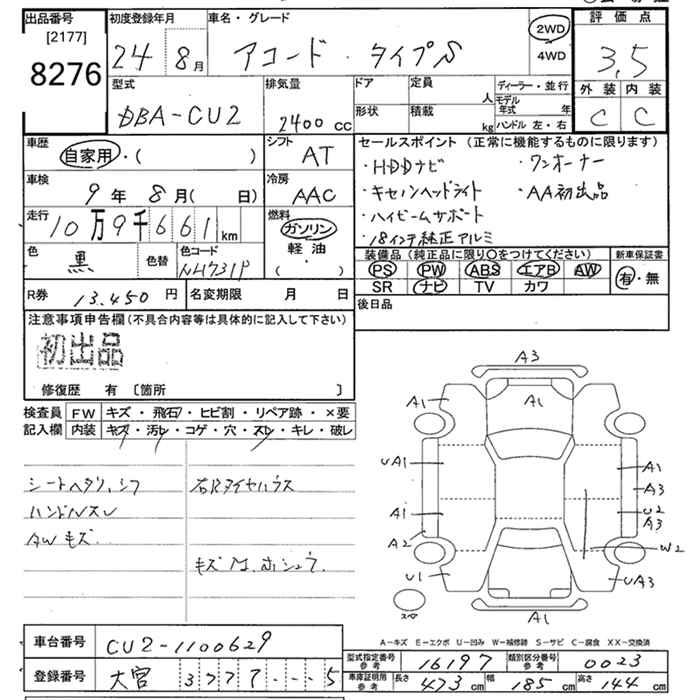 出品番号
[2177]
8276
初度登録年月
24年8月
車名・グレード
アコード タイプS
2WD
4WD
評価点
3.5
外装 内装
C C
型式
DBA-CU2
排気量
2400cc
ドア
形状
定員
人
積載
kg
ディーラー・並行
モデル年式 年
ハンドル 左・右
車歴
自家用・( )
シフト
AT
車検
9年8月( 日)
冷房
AAC
走行
10万9千661km
燃料
ガソリン
軽油
( )
色
黒
色替
色コード
NH731P
R券
13.450円
名変期限 月 日
セールスポイント (正常に機能するものに限ります)
・HDDナビ ・ワンオーナー
・キセノンヘッドライト ・AA初出品
・ハイビームサポート
・18インチ純正アルミ
装備品 (純正品に限り○をつけてください)
新車保証書
PS PW ABS エアB AW
SR ナビ TV カワ
有・無
後日品
注意事項申告欄(不具合内容等は具体的に記入して下さい)
初出品
修復歴 有 〔箇所 〕
検査員記入欄
FW キズ・飛石・ヒビ割・リペア跡・×要
内装 キズ・汚レ・コゲ・穴・スレ・キレ・破レ
シートヘタリ、シワ
ハンドルスレ
AWキズ
右Rタイヤハウス
A3
A1
A1
UA1
A1
A2
U1
A1
A3
U2
A3
W2
UA3
A1
A−キズ E−エクボ U−凹み W−補修跡 S−サビ C−腐食 XX−交換済
車台番号
CU2-1100629
登録番号
大宮 3777...5
型式指定番号
参考
16197
類別区分番号
参考
0023
車庫証明用
参考
長さ 473cm 幅 185cm 高さ 144cm